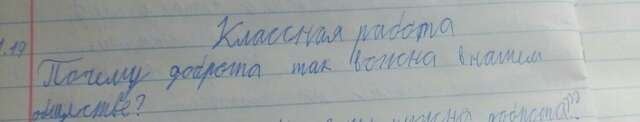 .19
Классная работа
Почему доброта так важна в нашем
обществе?
нужна доброта"?